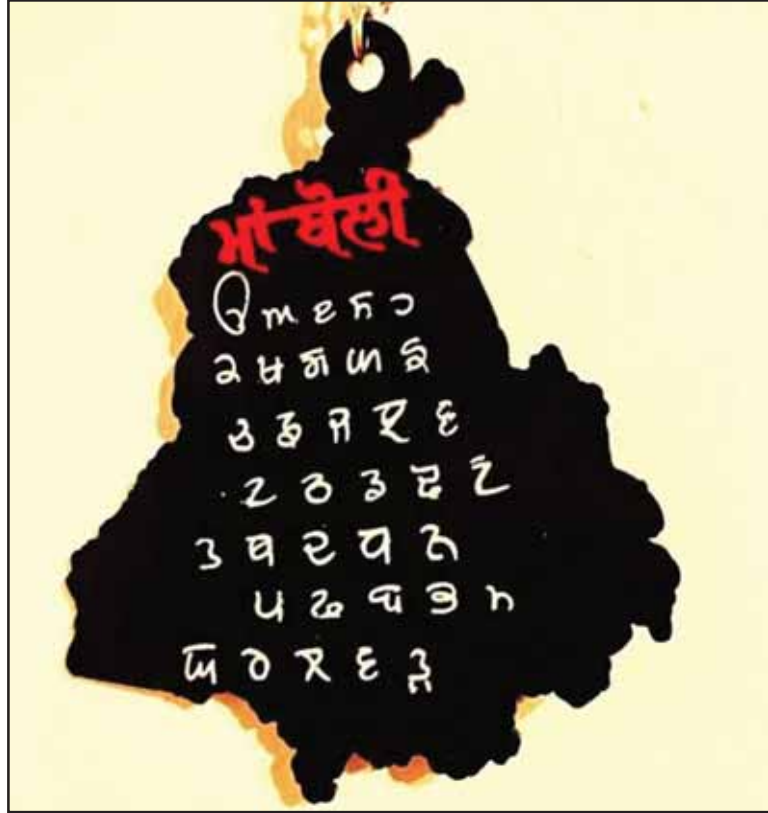 ਮਾਂ ਬੋਲੀ
ੳ ਅ ੲ ਸ ਹ
ਕ ਖ ਗ ਘ ਙ
ਚ ਛ ਜ ਝ ਞ
ਟ ਠ ਡ ਢ ਣ
ਤ ਥ ਦ ਧ ਨ
ਪ ਫ ਬ ਭ ਮ
ਯ ਰ ਲ ਵ ੜ